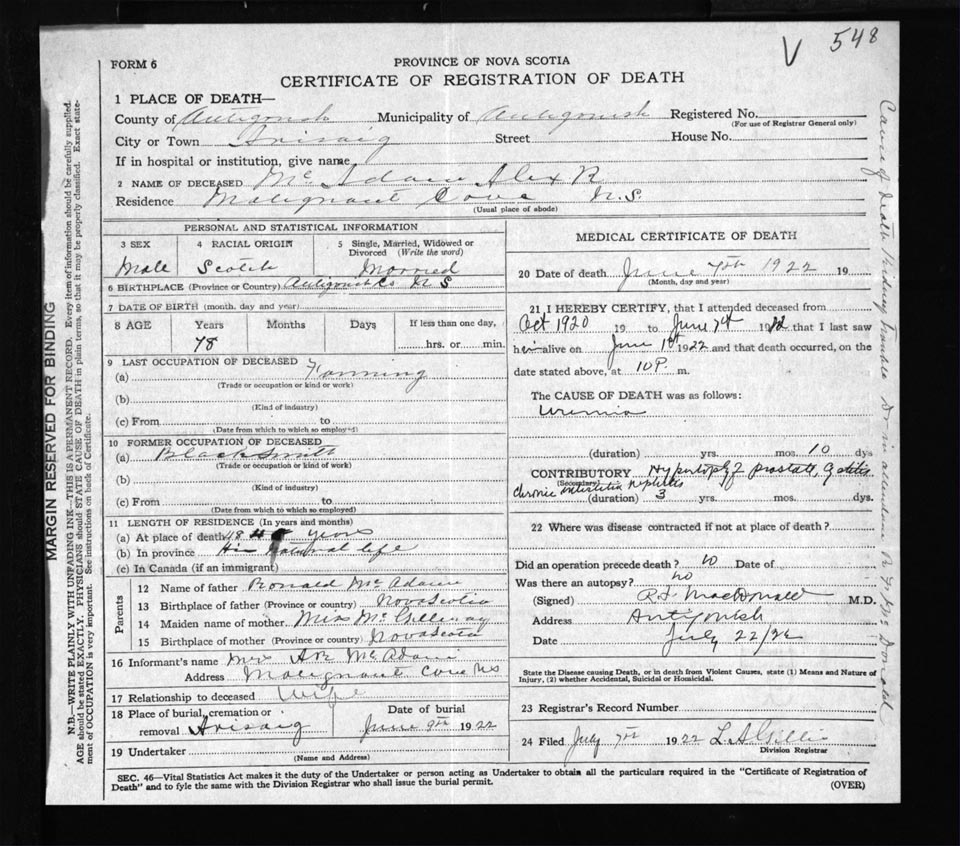 V 548
FORM 6
PROVINCE OF NOVA SCOTIA
CERTIFICATE OF REGISTRATION OF DEATH
1 PLACE OF DEATH—
County of Antigonish Municipality of Antigonish Registered No.
(For use of Registrar General only)
City or Town Arisaig Street House No.
If in hospital or institution, give name
2 NAME OF DECEASED Mc Adam Alex R
Residence Malignant Cove N.S.
(Usual place of abode)
PERSONAL AND STATISTICAL INFORMATION
3 SEX 4 RACIAL ORIGIN 5 Single, Married, Widowed or Divorced (Write the word)
Male Scotch Married
6 BIRTHPLACE (Province or Country) Antigonish Co N S
7 DATE OF BIRTH (month, day and year)
8 AGE Years Months Days If less than one day,
78 hrs. or min.
9 LAST OCCUPATION OF DECEASED
(a) Farming
(Trade or occupation or kind or work)
(b)
(Kind of industry)
(c) From to
(Date from which to which so employed)
10 FORMER OCCUPATION OF DECEASED
(a) Blacksmith
(Trade or occupation or kind of work)
(b)
(Kind of industry)
(c) From to
(Date from which to which so employed)
11 LENGTH OF RESIDENCE (In years and months)
(a) At place of death 48 years
(b) In province His natural life
(c) In Canada (if an immigrant)
Parents
12 Name of father Ronald Mc Adam
13 Birthplace of father (Province or country) Nova Scotia
14 Maiden name of mother Miss McGillivray
15 Birthplace of mother (Province or country) Nova Scotia
16 Informant's name Mrs McAdam
Address Malignant Cove NS
17 Relationship to deceased Wife
18 Place of burial, cremation or removal Arisaig
Date of burial
June 9th 1922
19 Undertaker
(Name and Address)
MEDICAL CERTIFICATE OF DEATH
20 Date of death June 7th 1922 19
(Month, day and year)
21 I HEREBY CERTIFY, that I attended deceased from
Oct 1920 19 to June 7th 1922 that I last saw
him alive on June 1st 1922 and that death occurred, on the
date stated above, at 10 P. m.
The CAUSE OF DEATH was as follows:
Uremia
(duration) yrs. mos. 10 dys
CONTRIBUTORY Hypertrophy of prostate, Cystitis
(Secondary)
Chronic interstitial nephritis
(duration) 3 yrs. mos. dys.
22 Where was disease contracted if not at place of death?
Did an operation precede death? no Date of
Was there an autopsy? no
(Signed) R.F. MacDonald M.D.
Address Antigonish
Date July 22/22
State the Disease causing Death, or in death from Violent Causes, state (1) Means and Nature of Injury, (2) whether Accidental, Suicidal or Homicidal.
23 Registrar's Record Number
24 Filed July 7th 1922 L. A Gillis
Division Registrar
SEC. 46—Vital Statistics Act makes it the duty of the Undertaker or person acting as Undertaker to obtain all the particulars required in the "Certificate of Registration of
Death" and to fyle the same with the Division Registrar who shall issue the burial permit.
(OVER)
MARGIN RESERVED FOR BINDING
N.B.—WRITE PLAINLY WITH UNFADING INK—THIS IS A PERMANENT RECORD. Every item of information should be carefully supplied.
AGE should be stated EXACTLY. PHYSICIANS should STATE CAUSE OF DEATH in plain terms, so that it may be properly classified. Exact state-
ment of OCCUPATION is very important. See instructions on back of Certificate.
Cause of death Kidney Trouble Dr in attendance Dr McDonald